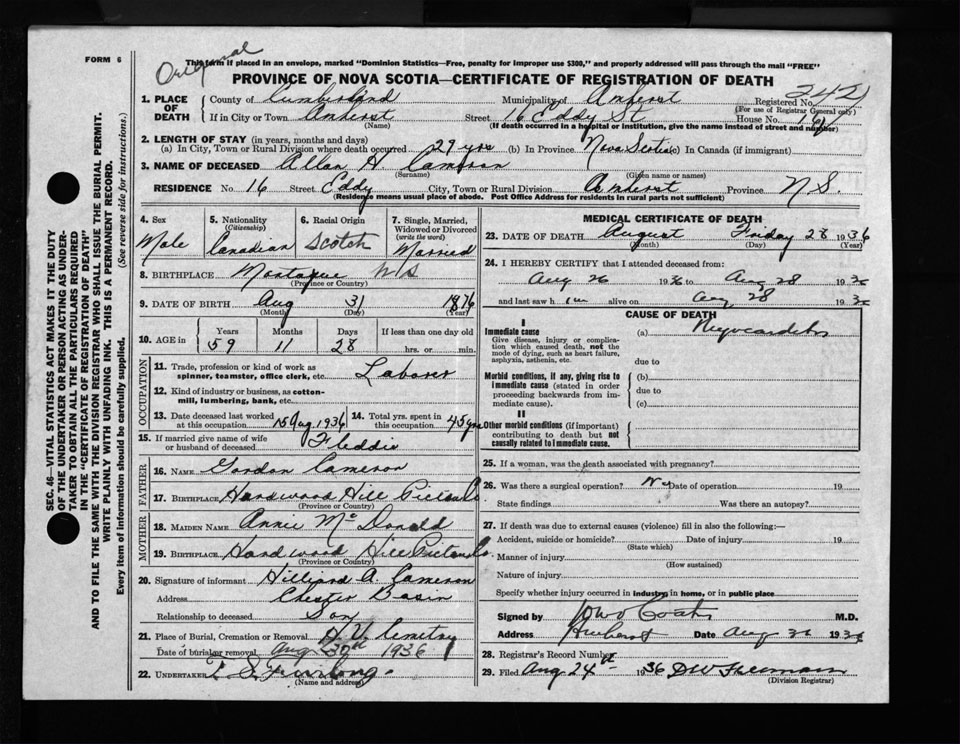 FORM 6
Original
This form if placed in an envelope, marked "Dominion Statistics—Free, penalty for improper use $300," and properly addressed will pass through the mail "FREE"
PROVINCE OF NOVA SCOTIA—CERTIFICATE OF REGISTRATION OF DEATH
SEC. 46—VITAL STATISTICS ACT MAKES IT THE DUTY
OF THE UNDERTAKER OR PERSON ACTING AS UNDER-
TAKER TO OBTAIN ALL THE PARTICULARS REQUIRED
IN THE "CERTIFICATE OF REGISTRATION OF DEATH"
AND TO FILE THE SAME WITH THE DIVISION REGISTRAR WHO SHALL ISSUE THE BURIAL PERMIT.
WRITE PLAINLY WITH UNFADING INK. THIS IS A PERMANENT RECORD.
Every item of information should be carefully supplied. (See reverse side for instructions.)
1. PLACE OF DEATH County of Cumberland Municipality of Amherst Registered No. 242
(For use of Registrar General only)
If in City or Town Amherst Street 16 Eddy St House No. 16
(Name) (If death occurred in a hospital or institution, give the name instead of street and number)
2. LENGTH OF STAY (in years, months and days)
(a) In City, Town or Rural Division where death occurred 29 yrs (b) In Province Nova Scotia (c) In Canada (if immigrant)
3. NAME OF DECEASED Allan H Cameron
(Surname) (Given name or names)
RESIDENCE No. 16 Street Eddy City, Town or Rural Division Amherst Province N.S.
(Residence means usual place of abode. Post Office Address for residents in rural parts not sufficient)
4. Sex Male
5. Nationality (Citizenship) Canadian
6. Racial Origin Scotch
7. Single, Married, Widowed or Divorced (write the word) Married
8. BIRTHPLACE Montague N S
(Province or Country)
9. DATE OF BIRTH Aug 31 1876
(Month) (Day) (Year)
10. AGE in Years Months Days If less than one day old
59 11 28 hrs. or min.
OCCUPATION
11. Trade, profession or kind of work as spinner, teamster, office clerk, etc. Laborer
12. Kind of industry or business, as cotton-mill, lumbering, bank, etc.
13. Date deceased last worked at this occupation 15 Aug 1936 14. Total yrs. spent in this occupation 45 yrs
15. If married give name of wife or husband of deceased Fleddie
FATHER
16. NAME Gordon Cameron
17. BIRTHPLACE Hardwood Hill Pictou Co.
(Province or Country)
MOTHER
18. MAIDEN NAME Annie McDonald
19. BIRTHPLACE Hardwood Hill Pictou Co.
(Province or Country)
20. Signature of informant Hilliard A. Cameron
Address Chester Basin
Relationship to deceased Son
21. Place of Burial, Cremation or Removal H. V. Cemetry
Date of burial or removal Aug 30th 1936
22. UNDERTAKER T. S. Furlong
(Name and address)
MEDICAL CERTIFICATE OF DEATH
23. DATE OF DEATH August Friday 28 1936
(Month) (Day) (Year)
24. I HEREBY CERTIFY that I attended deceased from:
Aug 26 1936 to Aug 28 1936
and last saw him alive on Aug 28 1936
CAUSE OF DEATH
I
Immediate cause (a) Myocarditis
Give disease, injury or complication which caused death, not the mode of dying, such as heart failure, asphyxia, asthenia, etc.
due to
Morbid conditions, if any, giving rise to immediate cause (stated in order proceeding backwards from immediate cause).
(b)
due to
(c)
II
Other morbid conditions (if important) contributing to death but not causally related to immediate cause.
25. If a woman, was the death associated with pregnancy?
26. Was there a surgical operation? No Date of operation 19
State findings Was there an autopsy?
27. If death was due to external causes (violence) fill in also the following:—
Accident, suicide or homicide? Date of injury 19
(State which)
Manner of injury
(How sustained)
Nature of injury
Specify whether injury occurred in industry, in home, or in public place
Signed by M.D.
Address Amherst Date Aug 30 1936
28. Registrar's Record Number
29. Filed Aug 24th 1936 D W Freeman
(Division Registrar)